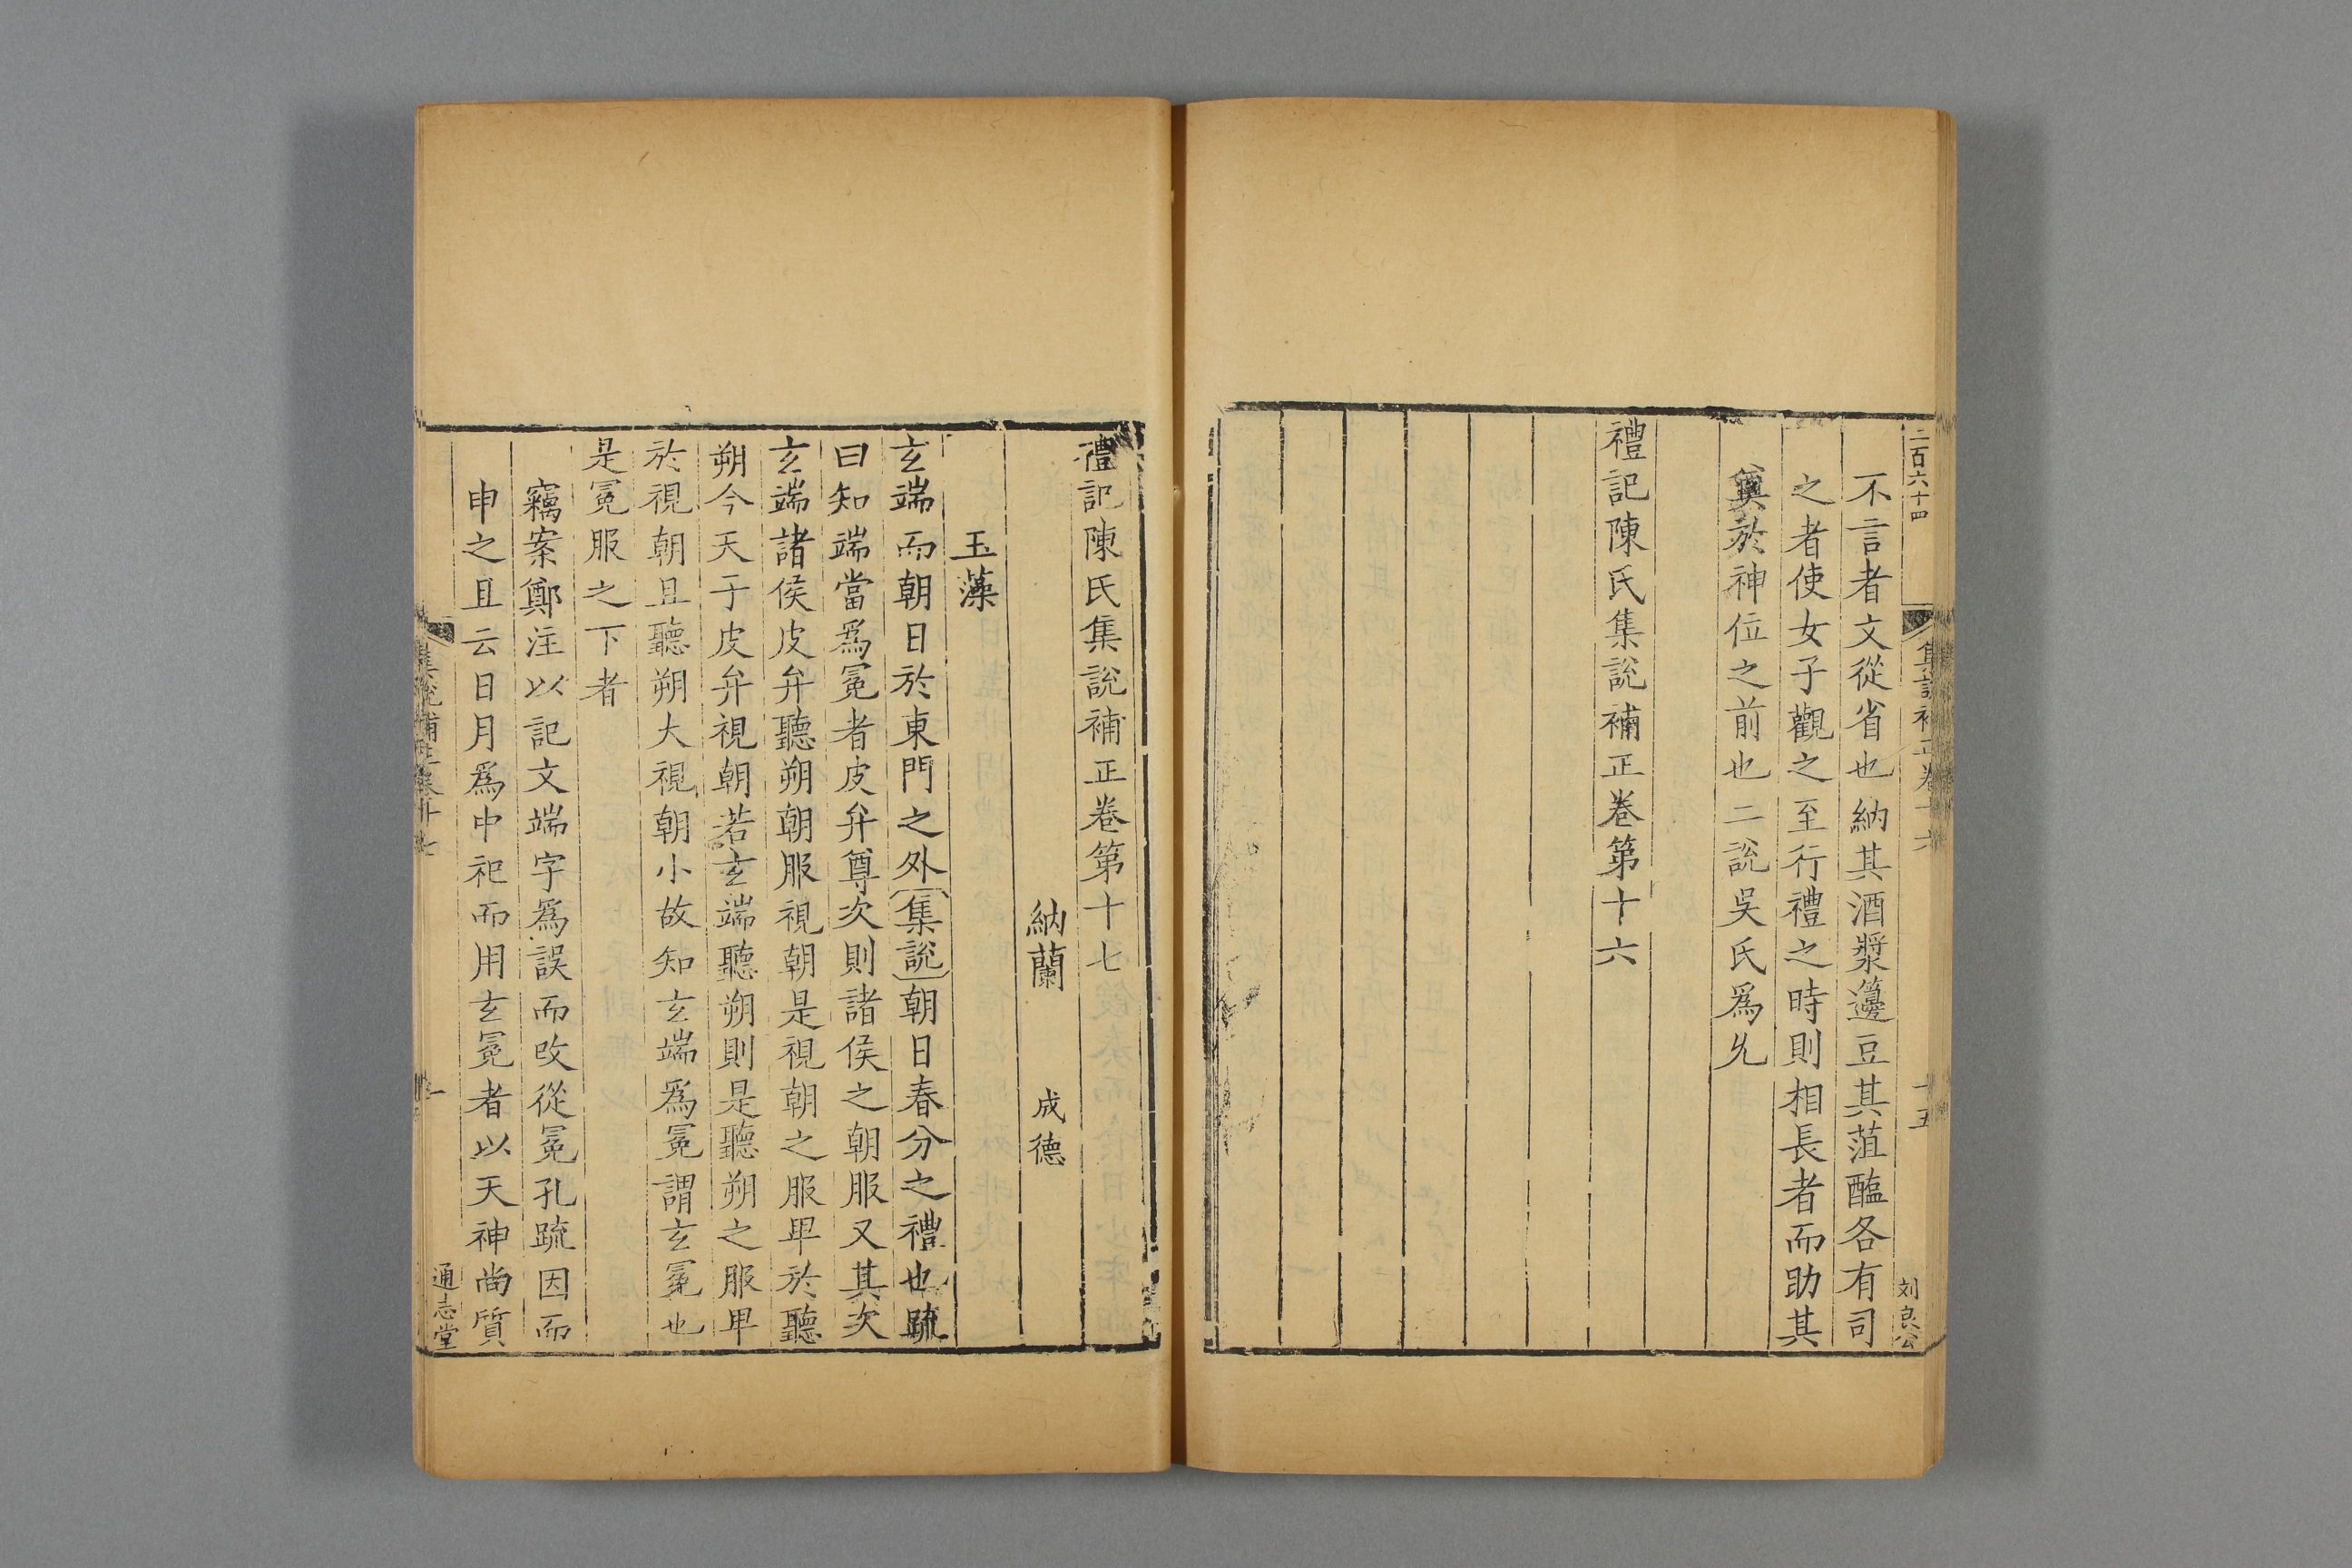 二百六十四
集說補正卷十六
十五
刘良公
不言者文從省也納其酒漿籩豆其菹醢各有司
之者使女子觀之至行禮之時則相長者而助其
奠於神位之前也二說吳氏爲允
禮記陳氏集說補正卷第十六
禮記陳氏集說補正卷第十七
納蘭 成德
玉藻
玄端而朝日於東門之外集說朝日春分之禮也疏
曰知端當爲冕者皮弁尊次則諸侯之朝服又其次
玄端諸侯皮弁聽朔朝服視朝是視朝之服卑於聽
朔今天子皮弁視朝若玄端聽朔則是聽朔之服卑
於視朝且聽朔大視朝小故知玄端爲冕謂玄冕也
是冕服之下者
竊案鄭注以記文端字爲誤而改從冕孔疏因而
申之且云日月爲中祀而用玄冕者以天神尚質
集說補正卷十七
一
通志堂